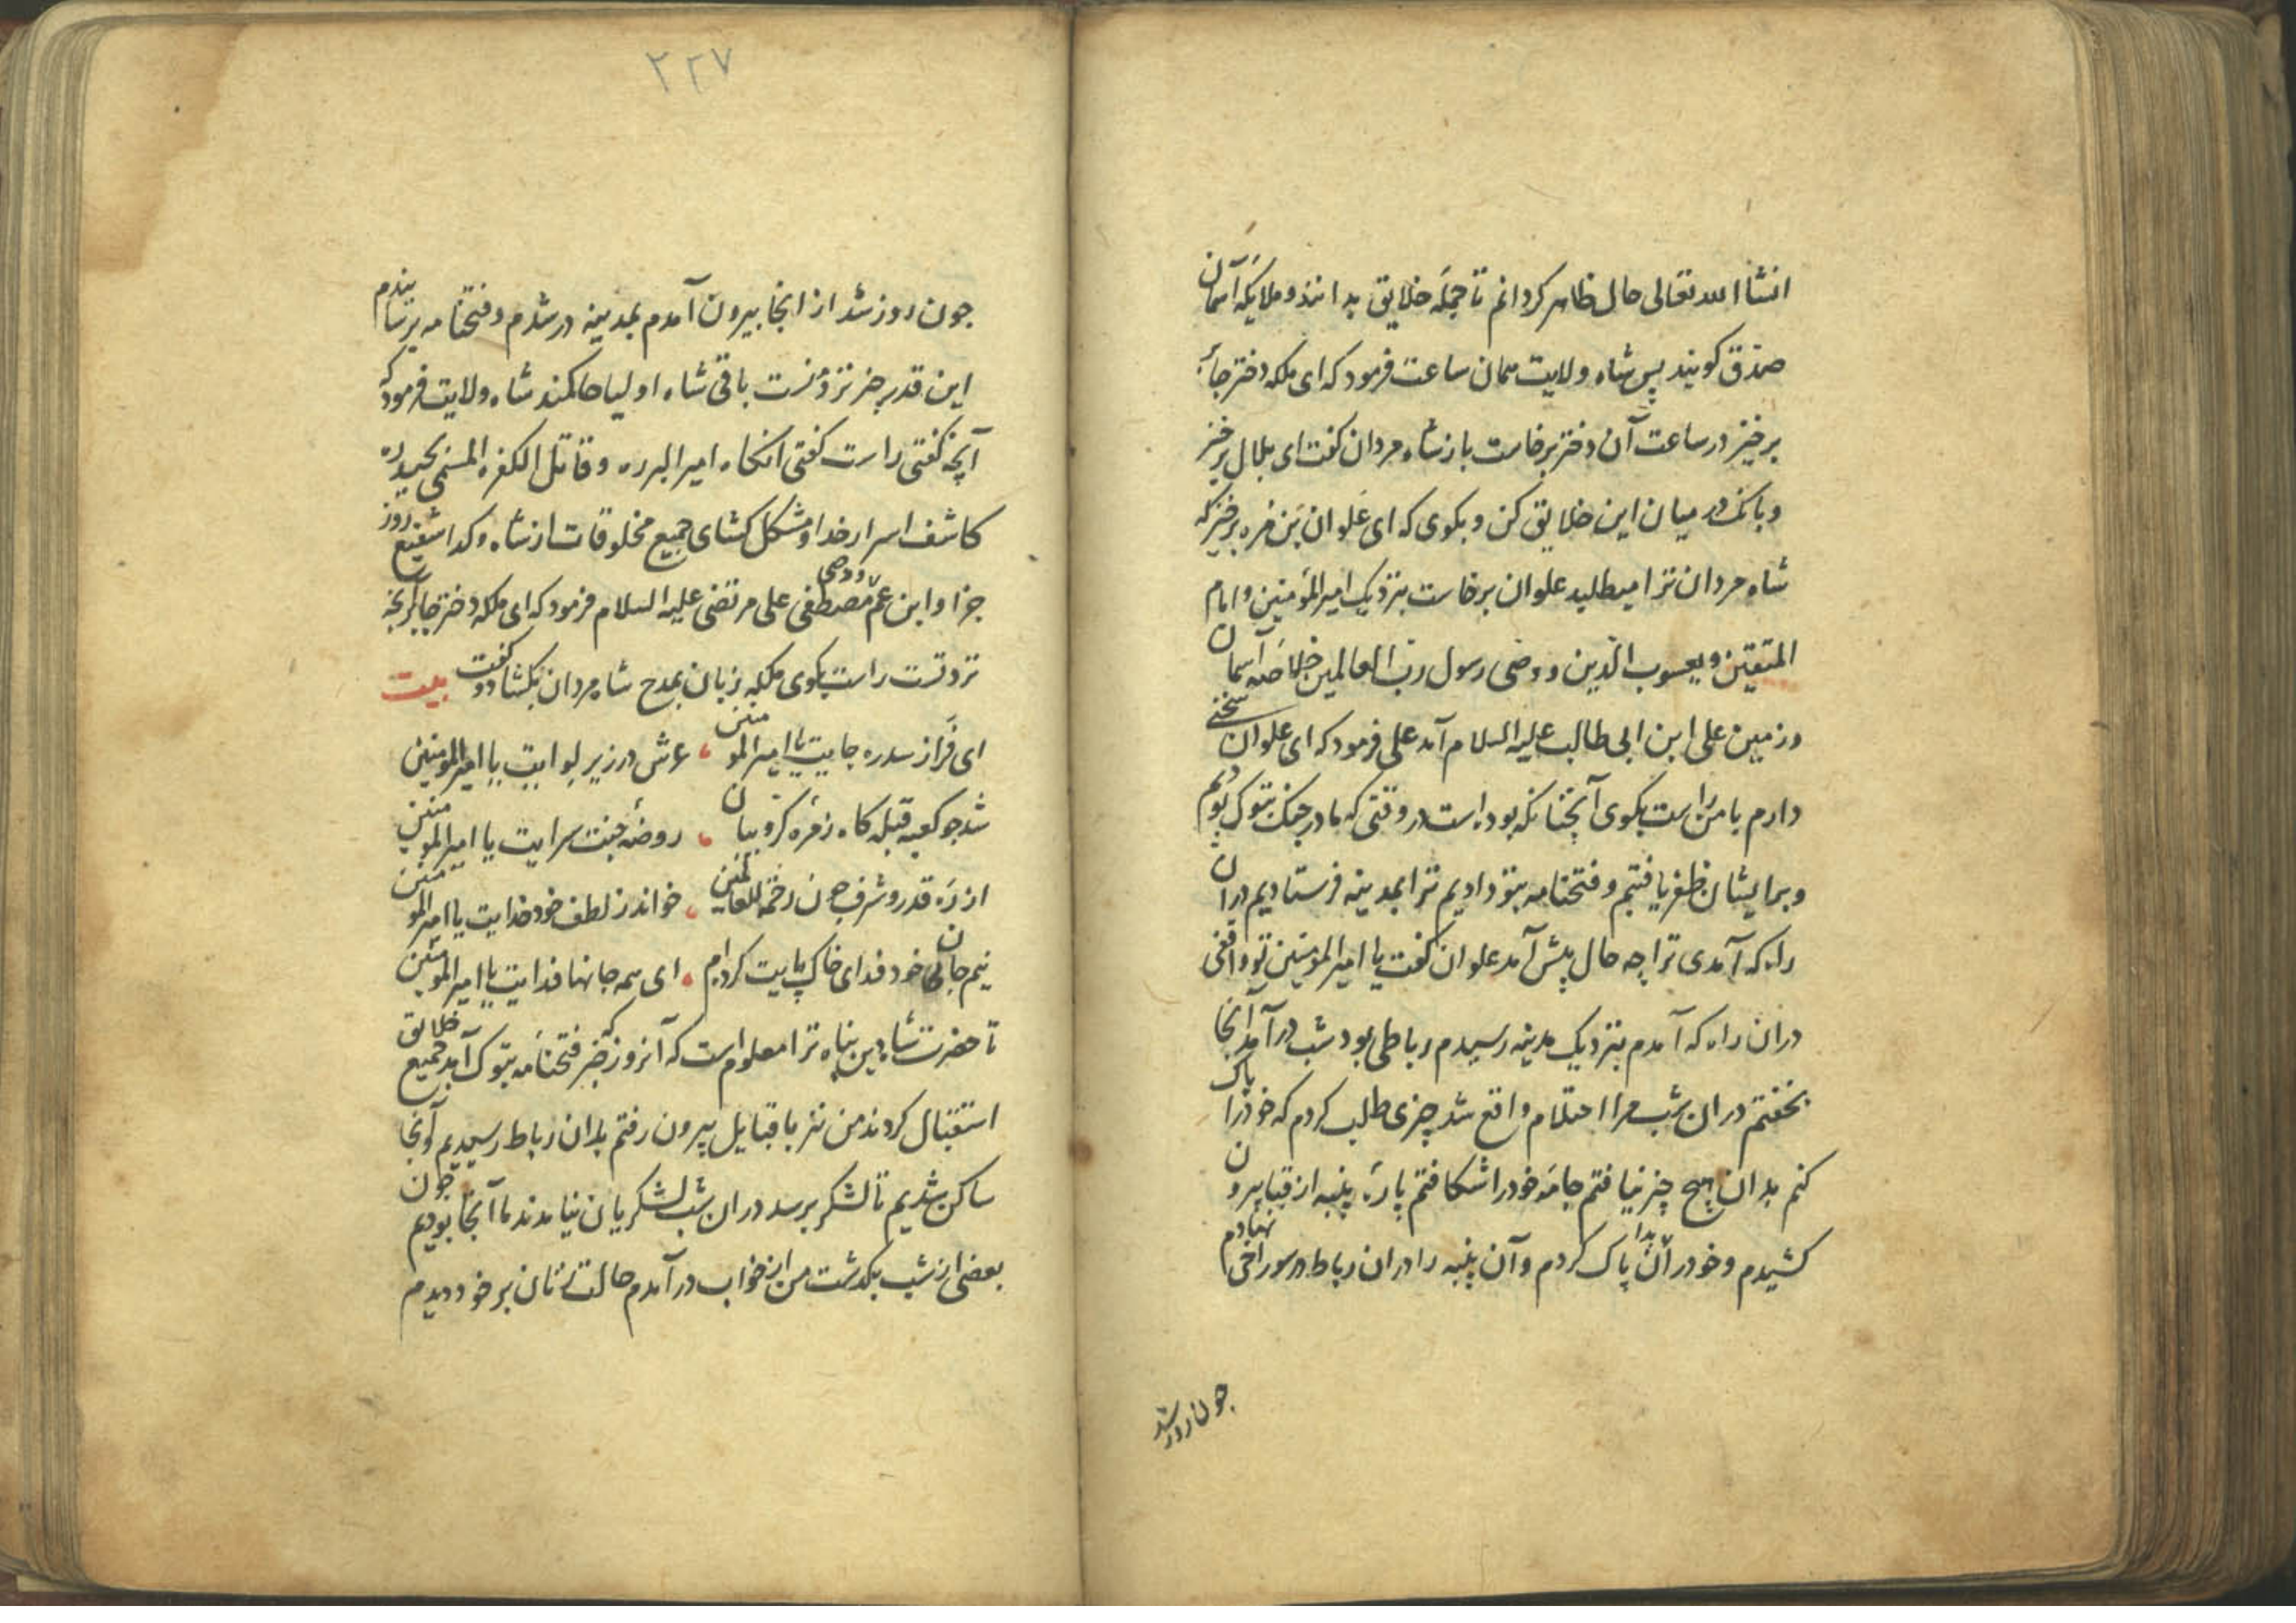 انشاالله تعالی حال ظاهر کردانم تا جمله خلایق بدانند و ملایکه آسمان
صدق کویند پس شاه ولایت همان ساعت فرمود که ای ملکه دختر جابر
برخیز در ساعت آن دختر برخاست باز شاه مردان کفت ای بلال برخیز
و بانک در میان این خلایق کن و بکوی که ای علوان بن مره برخیز که
شاه مردان ترا میطلبد علوان برخاست بنزدیک امیرالمؤمنین و امام
المتقین و یعسوب الدین و وصی رسول رب العالمین خلاصه آسمان
و زمین علی ابن ابی طالب علیه السلام آمد علی فرمود که ای علوان سخنی
دارم با من راست بکوی آنچنانکه بوده است در وقتی که ما در جنک تبوک بودیم
و بر ایشان ظفر یافتیم و فتحنامه بتو دادیم ترا بمدینه فرستادیم در آن
راه که آمدی ترا چه حال پیش آمد علوان کفت یا امیرالمؤمنین تو واقفی
دران راه که آمدم بنزدیک مدینه رسیدم رباطی بود شب در آمد آنجا
بخفتم دران شب مرا احتلام واقع شد چیزی طلب کردم که خود را پاک
کنم بدان هیچ چیز نیافتم جامه خود را شکافتم پارهٔ پنبه از قبا بیرون
کشیدم و خود را بدان پاک کردم و آن پنبه را دران رباط در سوراخی نهادم
جون روز شد
۲۲۷
جون روز شد از انجا بیرون آمدم بمدینه در شدم و فتحنامه برسانیدم
این قدر خبر نزد منست باقی شاه اولیا حاکمند شاه ولایت فرمود که
آنچه کفتی راست کفتی انکاه امیر البرره و قاتل الکفره المسمی بحیدره
کاشف اسرار خدا و مشکل کشای جمیع مخلوقات از شاه و کدا شفیع روز
جزا و ابن عم و وصی مصطفی علی مرتضی علیه السلام فرمود که ای ملکه دختر جابر آنچه
نزد تست راست بکوی ملکه زبان بمدح شاه مردان بکشاد و کفت بیت
ای فراز سدره جایت یا امیرالمومنین عرش در زیر لوایت یا امیرالمومنین
شد جو کعبه قبله کاه زمره کروبیان روضهٔ جنت سرایت یا امیرالمومنین
از ره قدر و شرف جون رحمة للعالمین خواند ز لطف خود خدایت یا امیرالمومنین
نیم جانی خود فدای خاک پایت کرده‌ام ای همه جانها فدایت یا امیرالمومنین
تا حضرت شاه دین پناه ترا معلوم است که آنروز که خبر فتحنامه تبوک آمد جمیع خلایق
استقبال کردند من نیز با قبایل بیرون رفتم بدان رباط رسیدیم و آنجا
ساکن شدیم تا لشکر برسد دران شب لشکریان نیامدند ما آنجا بودیم جون
بعضی از شب بکدشت من از خواب در آمدم حالت زنان بر خود دیدم